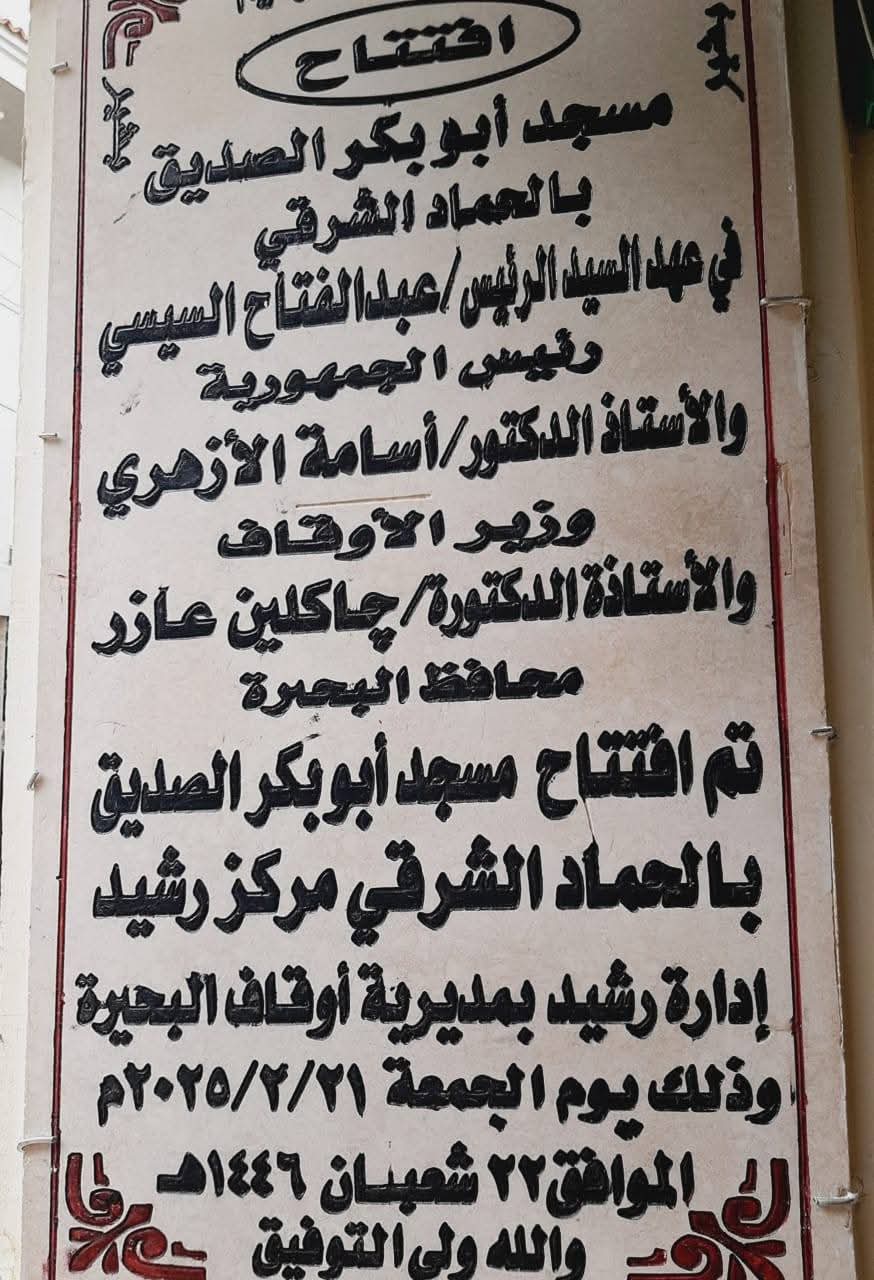 افتتاح
مسجد أبو بكر الصديق
بالحماد الشرقي
في عهد السيد الرئيس/عبدالفتاح السيسي
رئيس الجمهورية
والأستاذ الدكتور/أسامة الأزهري
وزير الأوقاف
والأستاذة الدكتورة/چاكلين عازر
محافظ البحيرة
تم افتتاح مسجد أبو بكر الصديق
بالحماد الشرقي مركز رشيد
إدارة رشيد بمديرية أوقاف البحيرة
وذلك يوم الجمعة ٢٠٢٥/٢/٢١م
الموافق ٢٢ شعبان ١٤٤٦هـ
والله ولى التوفيق